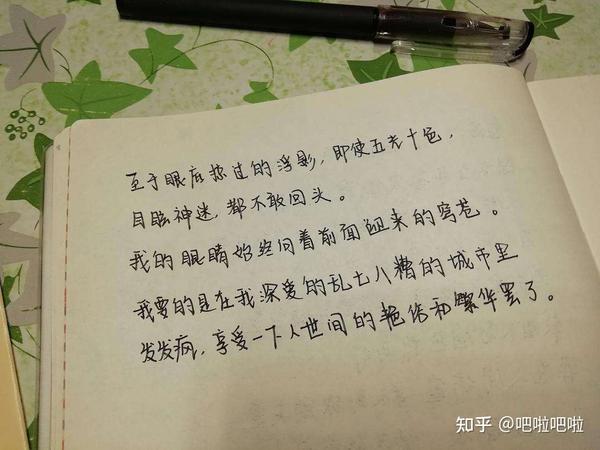 至于眼底掠过的浮影，即使五光十色，
目眩神迷，都不敢回头。
我的眼睛始终向着前面迎来的穹苍。
我要的是在我深爱的乱七八糟的城市里
发发疯，享受一下人世间的艳俗和繁华罢了。
知乎 @吧啦吧啦